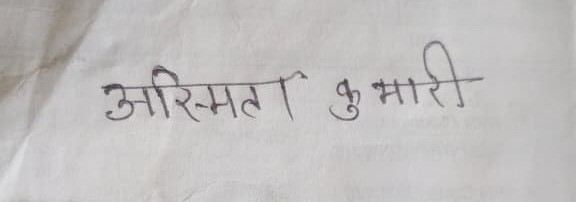 अस्मिता कुमारी